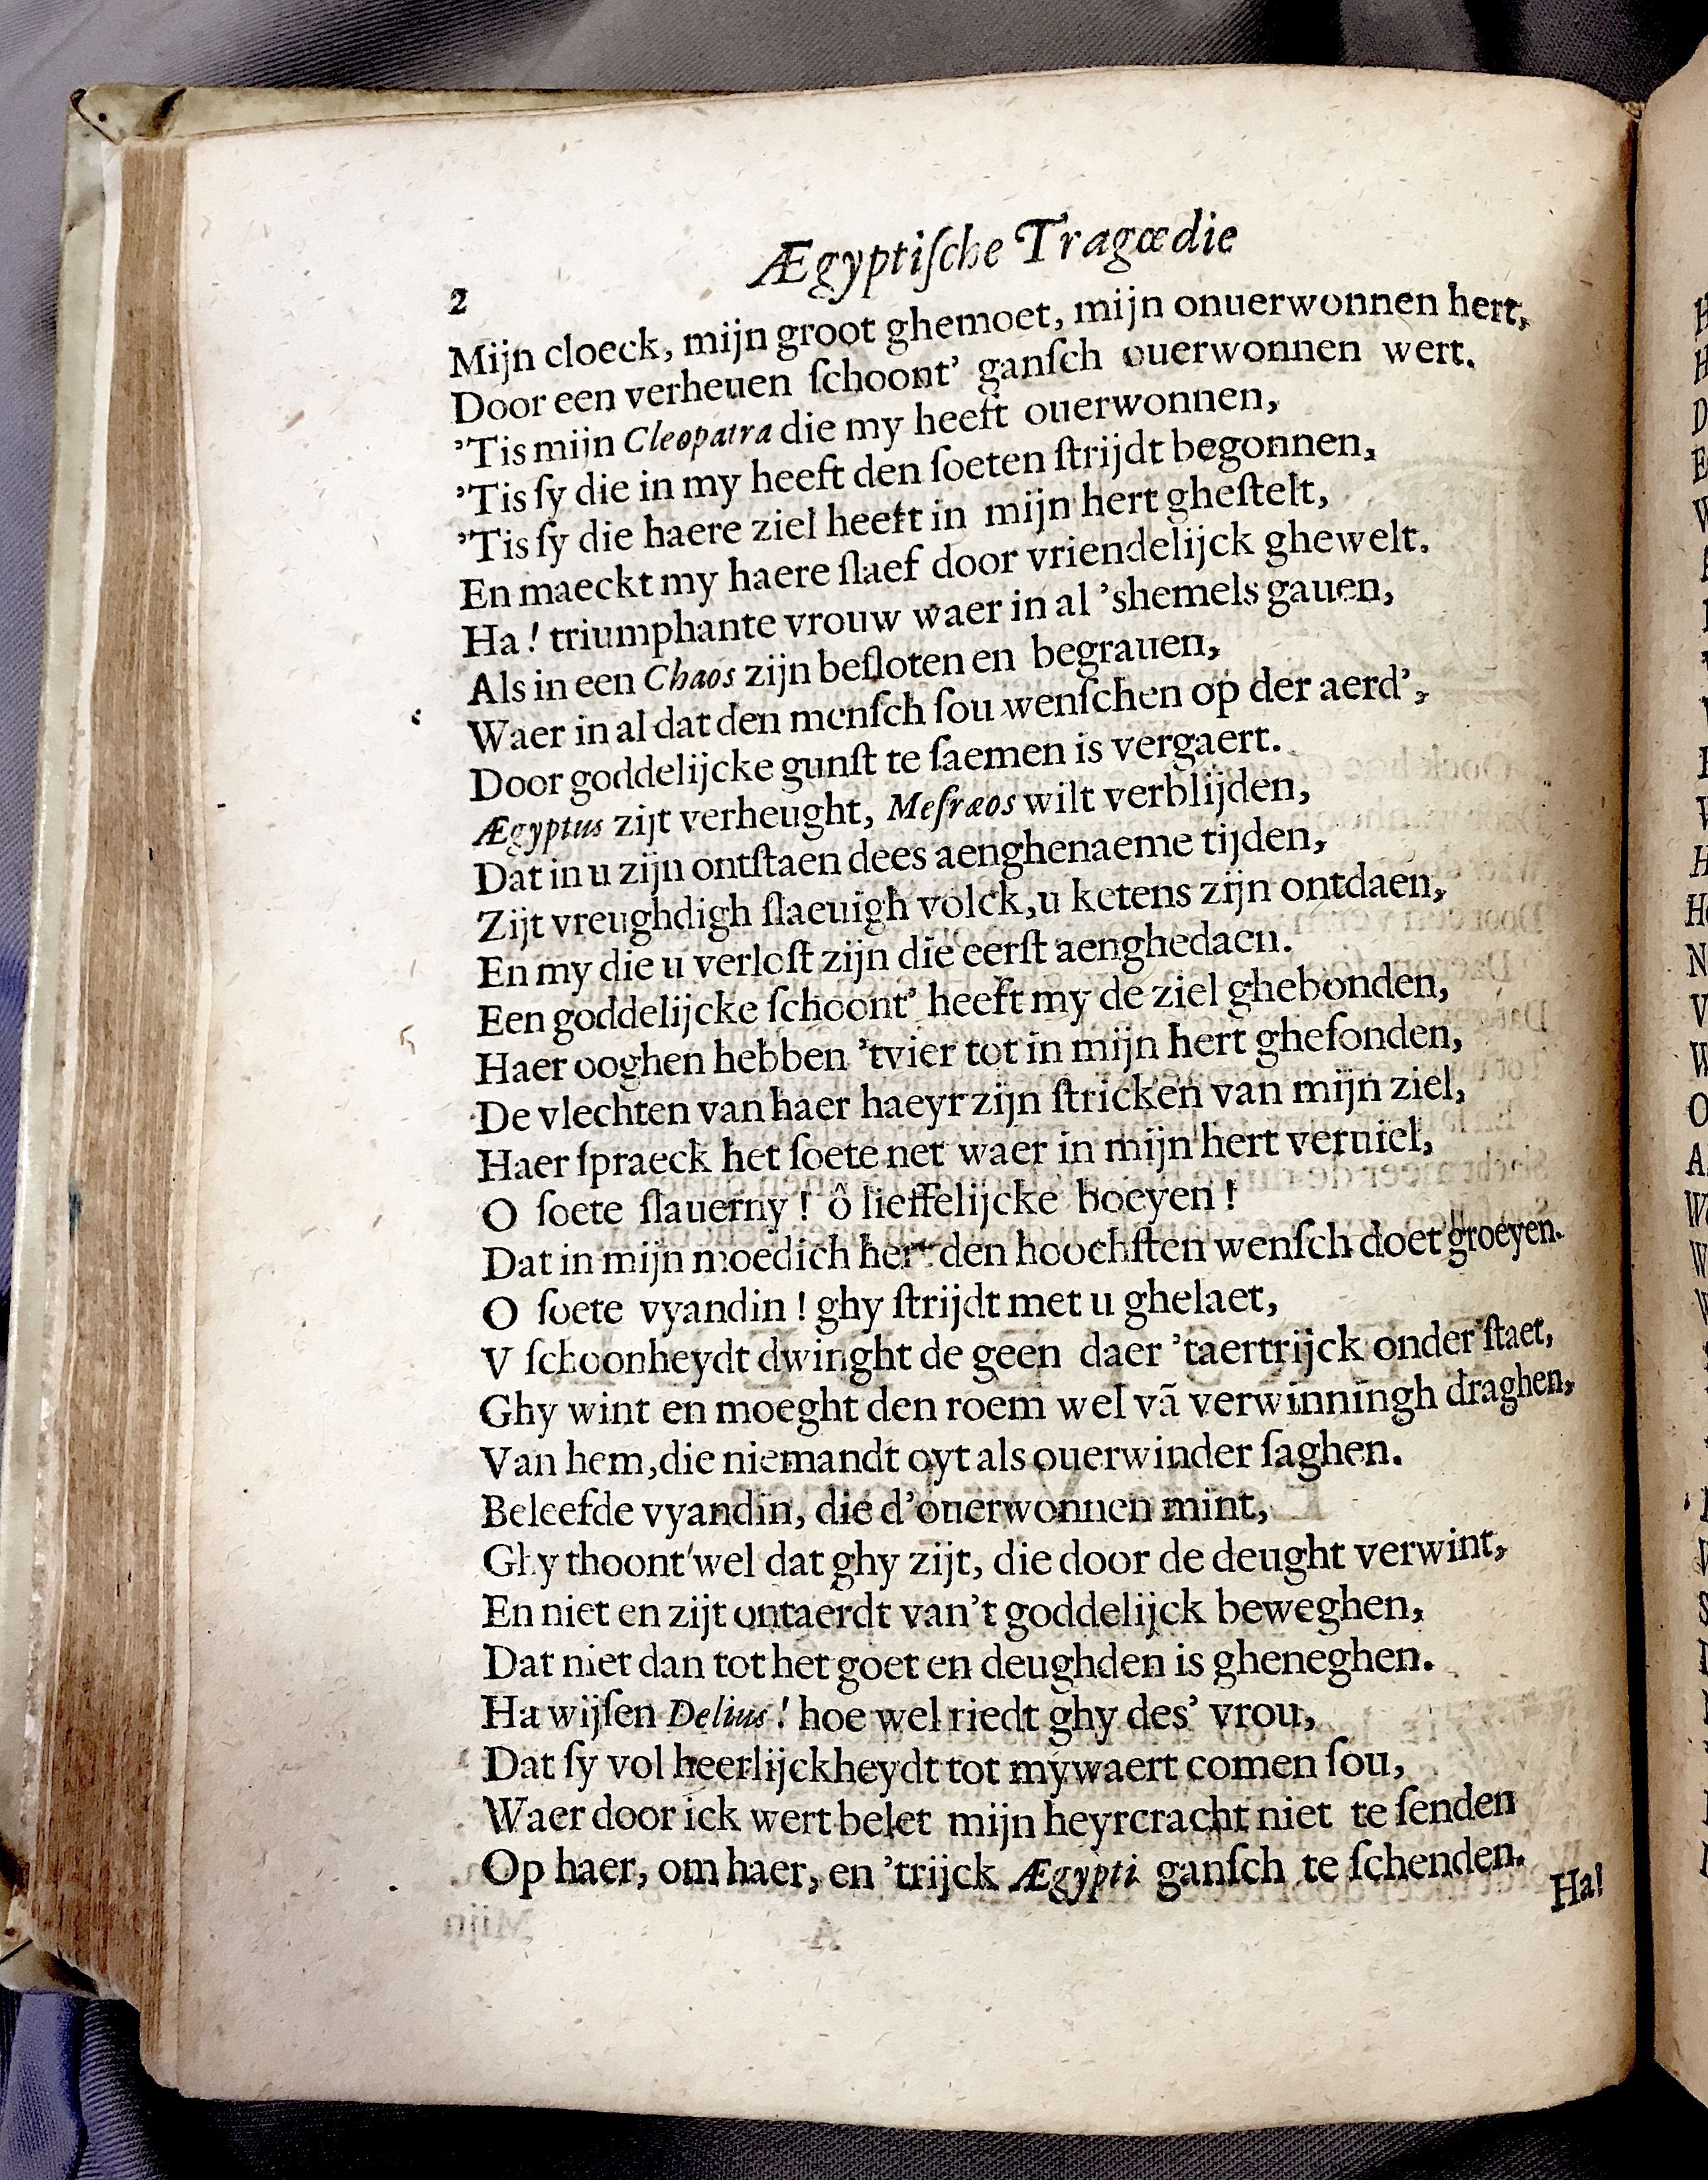 Ægyptiſche Tragœdie
2
Mijn cloeck, mijn groot ghemoet, mijn onuerwonnen hert,
Door een verheuen ſchoont' ganſch ouerwonnen wert.
'Tis mijn Cleopatra die my heeft ouerwonnen,
'Tis ſy die in my heeft den ſoeten ſtrijdt begonnen,
'Tis ſy die haere ziel heeft in mijn hert gheſtelt,
En maeckt my haere ſlaef door vriendelijck ghewelt.
Ha! triumphante vrouw waer in al 'shemels gauen,
Als in een Chaos zijn beſloten en begrauen,
Waer in al dat den menſch ſou wenſchen op der aerd',
Door goddelijcke gunſt te ſaemen is vergaert.
Ægyptus zijt verheught, Meſræos wilt verblijden,
Dat in u zijn ontſtaen dees aenghenaeme tijden,
Zijt vreughdigh ſlaeuigh volck,u ketens zijn ontdaen,
En my die u verloſt zijn die eerſt aenghedaen.
Een goddelijcke ſchoont' heeft my de ziel ghebonden,
Haer ooghen hebben 'tvier tot in mijn hert gheſonden,
De vlechten van haer haeyr zijn ſtricken van mijn ziel,
Haer ſpraeck het ſoete net waer in mijn hert veruiel,
O ſoete ſlauerny! ô lieffelijcke boeyen!
Dat in mijn moedich hert den hoochſten wenſch doet groeyen.
O ſoete vyandin! ghy ſtrijdt met u ghelaet,
V ſchoonheydt dwinght de geen daer 'taertrijck onder ſtaet,
Ghy wint en moeght den roem wel vã verwinningh draghen,
Van hem,die niemandt oyt als ouerwinder ſaghen.
Beleefde vyandin, die d'ouerwonnen mint,
Ghy thoont wel dat ghy zijt, die door de deught verwint,
En niet en zijt ontaerdt van't goddelijck beweghen,
Dat niet dan tot het goet en deughden is gheneghen.
Ha wijſen Delius! hoe wel riedt ghy des' vrou,
Dat ſy vol heerlijckheydt tot mywaert comen ſou,
Waer door ick wert belet mijn heyrcracht niet te ſenden
Op haer, om haer, en 'trijck Ægypti ganſch te ſchenden.
Ha!